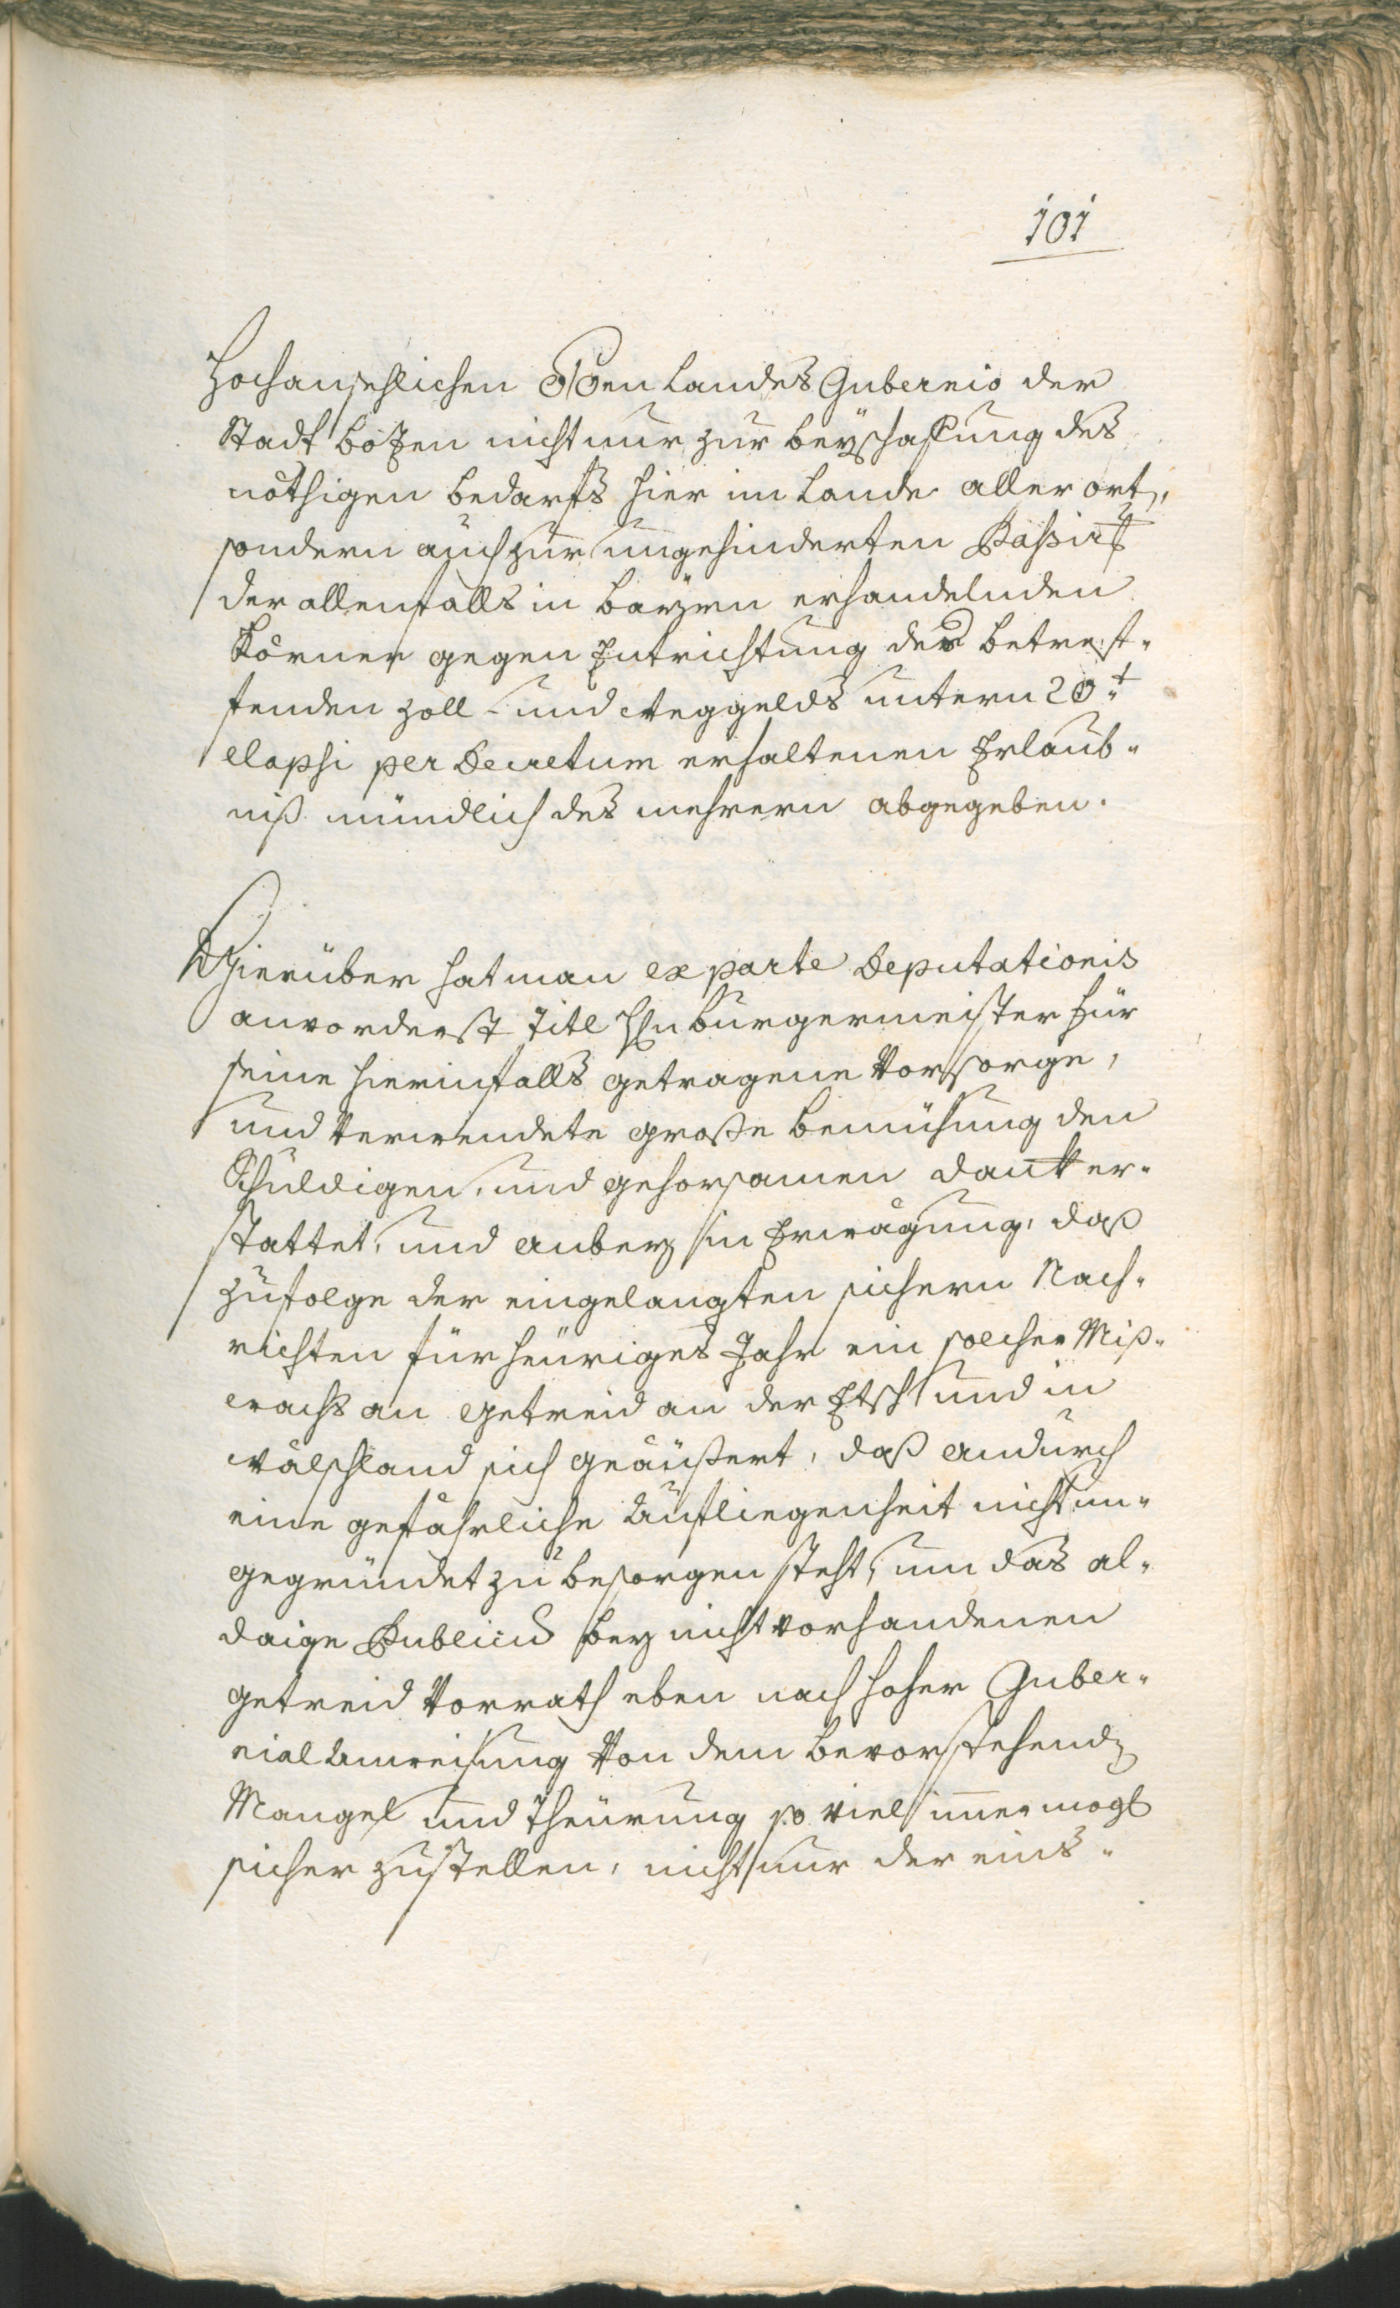 101
Hochansehlichen OÖen Landes Gubernio der
Stadt Botzen nicht nur zur beyschafung des
nöthigen bedarfs hier im Lande aller ort,
sondern auch zur ungehinderten Passirung
der allenfalls in Bayrn erhandelnden
Körner gegen Entrichtung des betref-
fenden Zoll- und Weggelds untern 20t
elapsi per Decretum erhaltenen Erlaub-
niß mündlich des mehrern abgegeben.
Hierüber hat man ex parte Deputationis
anvorderst Titl Hn Burgermeister für
seine hierinfalls getragene Vorsorge,
und verwendete große bemühung den
Schuldigen, und gehorsamen danck er-
stattet, und anbey in Erwägung, daß
zufolge der eingelangten sichern Nach-
richten für heüriges Jahr ein solcher Miß-
wachs an getreid an der Etsch und in
Wälschland sich geäußert, daß andurch
eine gefährliche Aufliegenheit nicht un-
gegründet zu besorgen steht, um das al-
daige Publicum bey nicht vorhandenen
getreid Vorrath eben nach hoher Guber-
nial Anweisung von dem bevorstehend
Mangel und Theürung so viel immer mögl
sicher zustellen, nicht nur der eins-